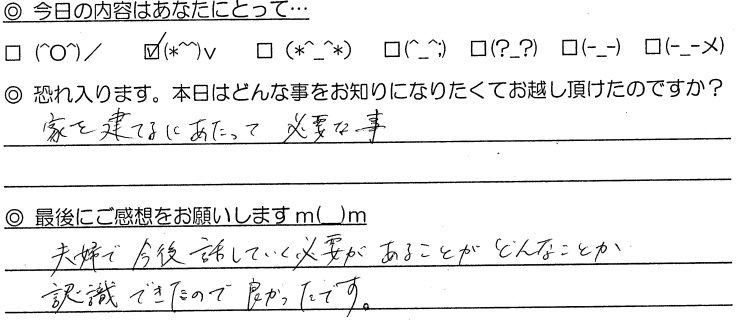 ◎ 今日の内容はあなたにとって…
□ (^O^)／ ☑(*^^)v □ (*^_^*) □(^_^;) □(?_?) □(-_-) □(-_-メ)
◎ 恐れ入ります。本日はどんな事をお知りになりたくてお越し頂けたのですか？
家を建てるにあたって 必要な事
◎ 最後にご感想をお願いしますm(__)m
夫婦で今後話していく必要があることがどんなことか
認識できたので良かったです。